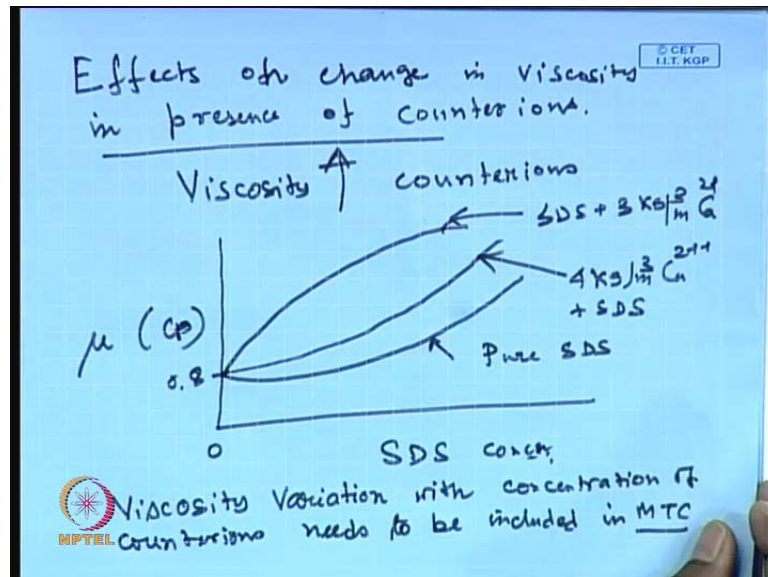 Effects of change in viscosity
in presence of counter ions.
© CET
I.I.T. KGP
Viscosity ↑ counterions
SDS + 3 kg/m³ Ca²⁺
4 kg/m³ Cu²⁺
+ SDS
Pure SDS
μ (cp)
0.8
0
SDS concn.
Viscosity Variation with concentration of
counterions needs to be included in MTC
NPTEL